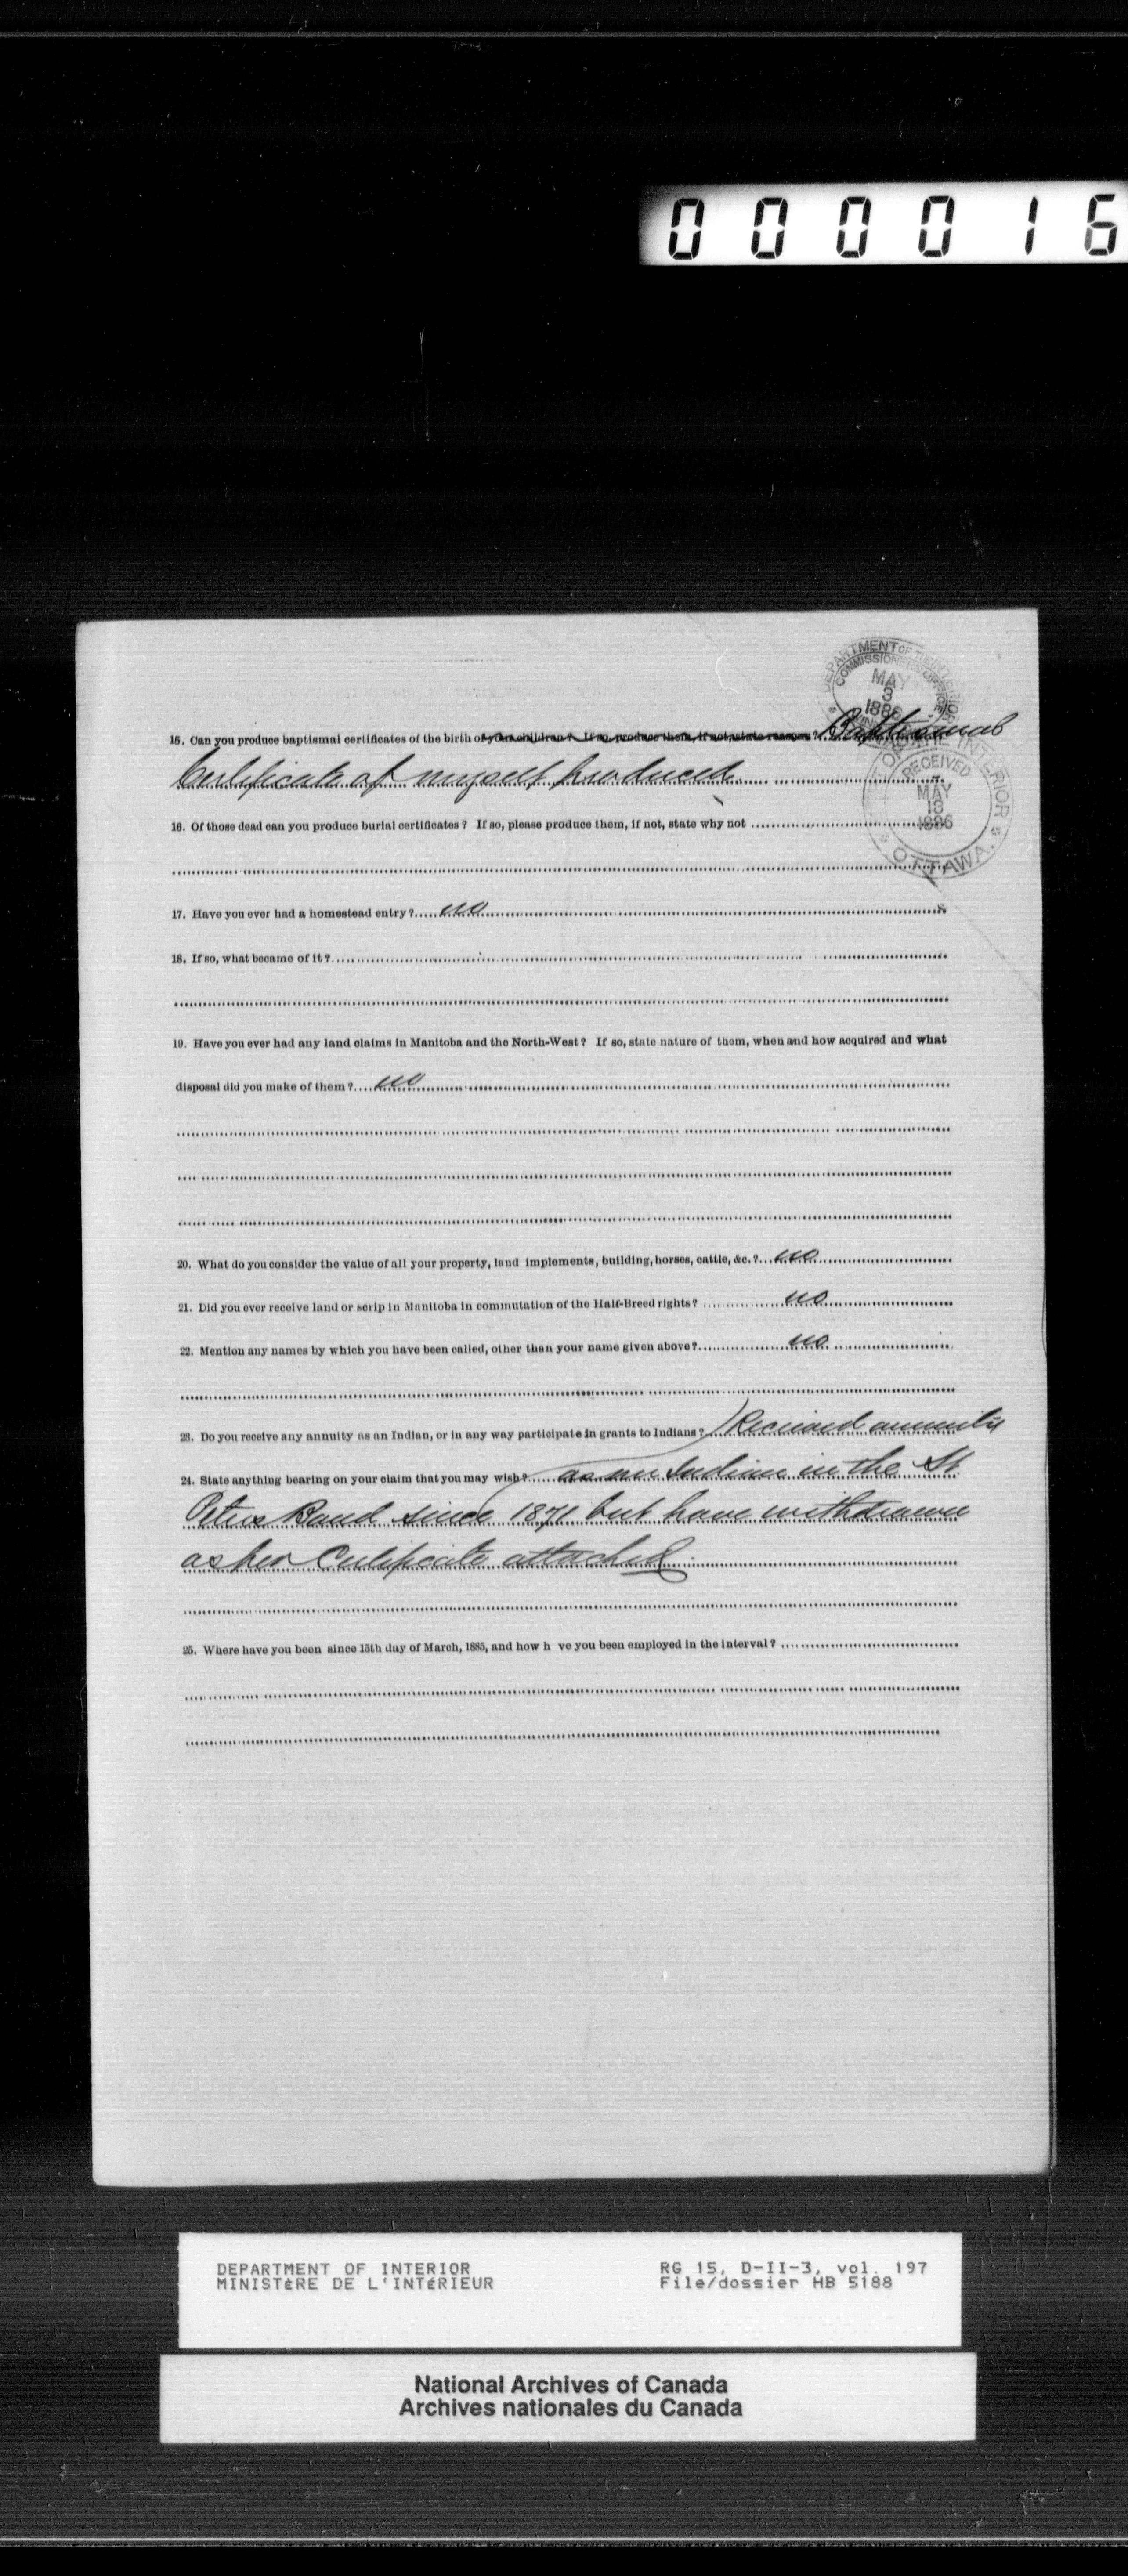 000016
DEPARTMENT OF THE INTERIOR
COMMISSIONER'S OFFICE
MAY
3
1886
15. Can you produce baptismal certificates of the birth of your children? If so, produce them, if not, state reasons? Baptismal
Certificate of myself produced
RECEIVED
MAY
13
1886
INTERIOR
OTTAWA.
16. Of those dead can you produce burial certificates? If so, please produce them, if not, state why not
17. Have you ever had a homestead entry? no
18. If so, what became of it?
19. Have you ever had any land claims in Manitoba and the North-West? If so, state nature of them, when and how acquired and what
disposal did you make of them? no
20. What do you consider the value of all your property, land implements, building, horses, cattle, &c.? no
21. Did you ever receive land or scrip in Manitoba in commutation of the Half-Breed rights? no
22. Mention any names by which you have been called, other than your name given above? no
23. Do you receive any annuity as an Indian, or in any way participate in grants to Indians? Received annuity
24. State anything bearing on your claim that you may wish? as an Indian in the St
Peters Band since 1871 but have withdrawn
as per Certificate attached.
25. Where have you been since 15th day of March, 1885, and how h ve you been employed in the interval?
DEPARTMENT OF INTERIOR
MINISTÈRE DE L'INTÉRIEUR
RG 15, D-II-3, vol. 197
File/dossier HB 5188
National Archives of Canada
Archives nationales du Canada